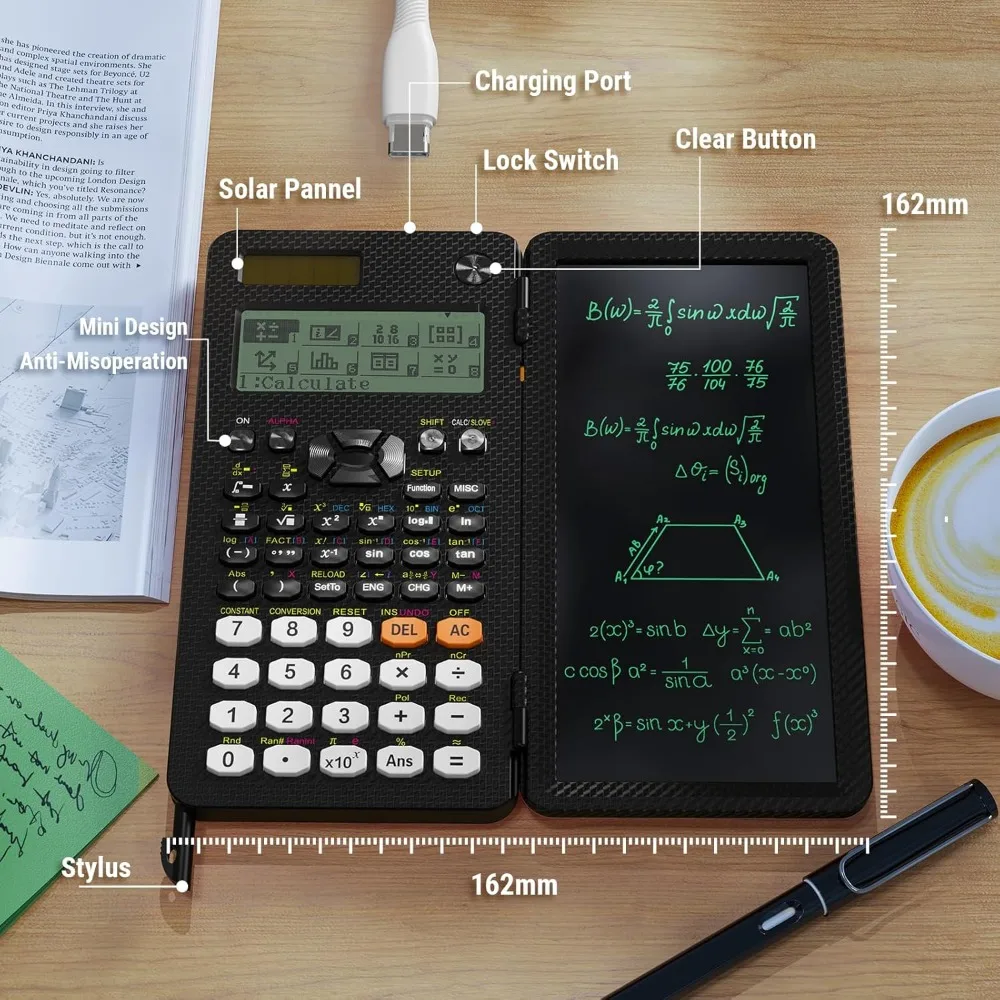 she has pioneered the creation of dramatic
and complex spatial environments. She
has designed stage sets for Beyoncé, U2
and Adele and created theatre sets for
plays such as The Lehman Trilogy at
the National Theatre and The Hunt at
the Almeida. In this interview, she and
editor Priya Khanchandani discuss
current projects and she raises her
desire to design responsibly in an age of
KHANCHANDANI: Is
sustainability in design going to filter
through to the upcoming London Design
Biennale, which you've titled Resonance?
DEVLIN: Yes, absolutely. We are now
going and choosing all the submissions
are coming in from all parts of the
We need to meditate and reflect on
current condition, but it's not enough.
the next step, which is the call to
How can anyone walking into the
Design Biennale come out with ▸
Charging Port
Lock Switch
Clear Button
Solar Pannel
162mm
Mini Design
Anti-Misoperation
1:Calculate
ON ALPHA SHIFT CALC/SLOVE
SETUP
Function MISC
x³ DEC HEX 10ˣ BIN eˣ OCT
√x x² xⁿ log ln
log FACT x! sin⁻¹ cos⁻¹ tan⁻¹
(−) x⁻¹ sin cos tan
Abs , X RELOAD Y M− M
( ) SetTo ENG CHG M+
CONSTANT CONVERSION RESET INS UNDO OFF
7 8 9 DEL AC
nPr nCr
4 5 6 × ÷
Pol Rec
1 2 3 + −
Rnd Ran# RanInt π e % ≈
0 • ×10ˣ Ans =
B(ω)=2/π ∫₀ sin ω x dω √2/π
75/76 · 100/104 · 76/75
B(ω)=2/π ∫₀ sin ω x dω √2/π
Δ σᵢ = (Sᵢ)org
A₂ A₃
AB
A₁ φ? A₄
2(x)³=sin b Δy=∑ⁿₓ₌₀ = ab²
c cos β a²= 1/sin a a³(x-x⁰)
2ˣβ=sin x+y(1/2)² f(x)³
Stylus
162mm